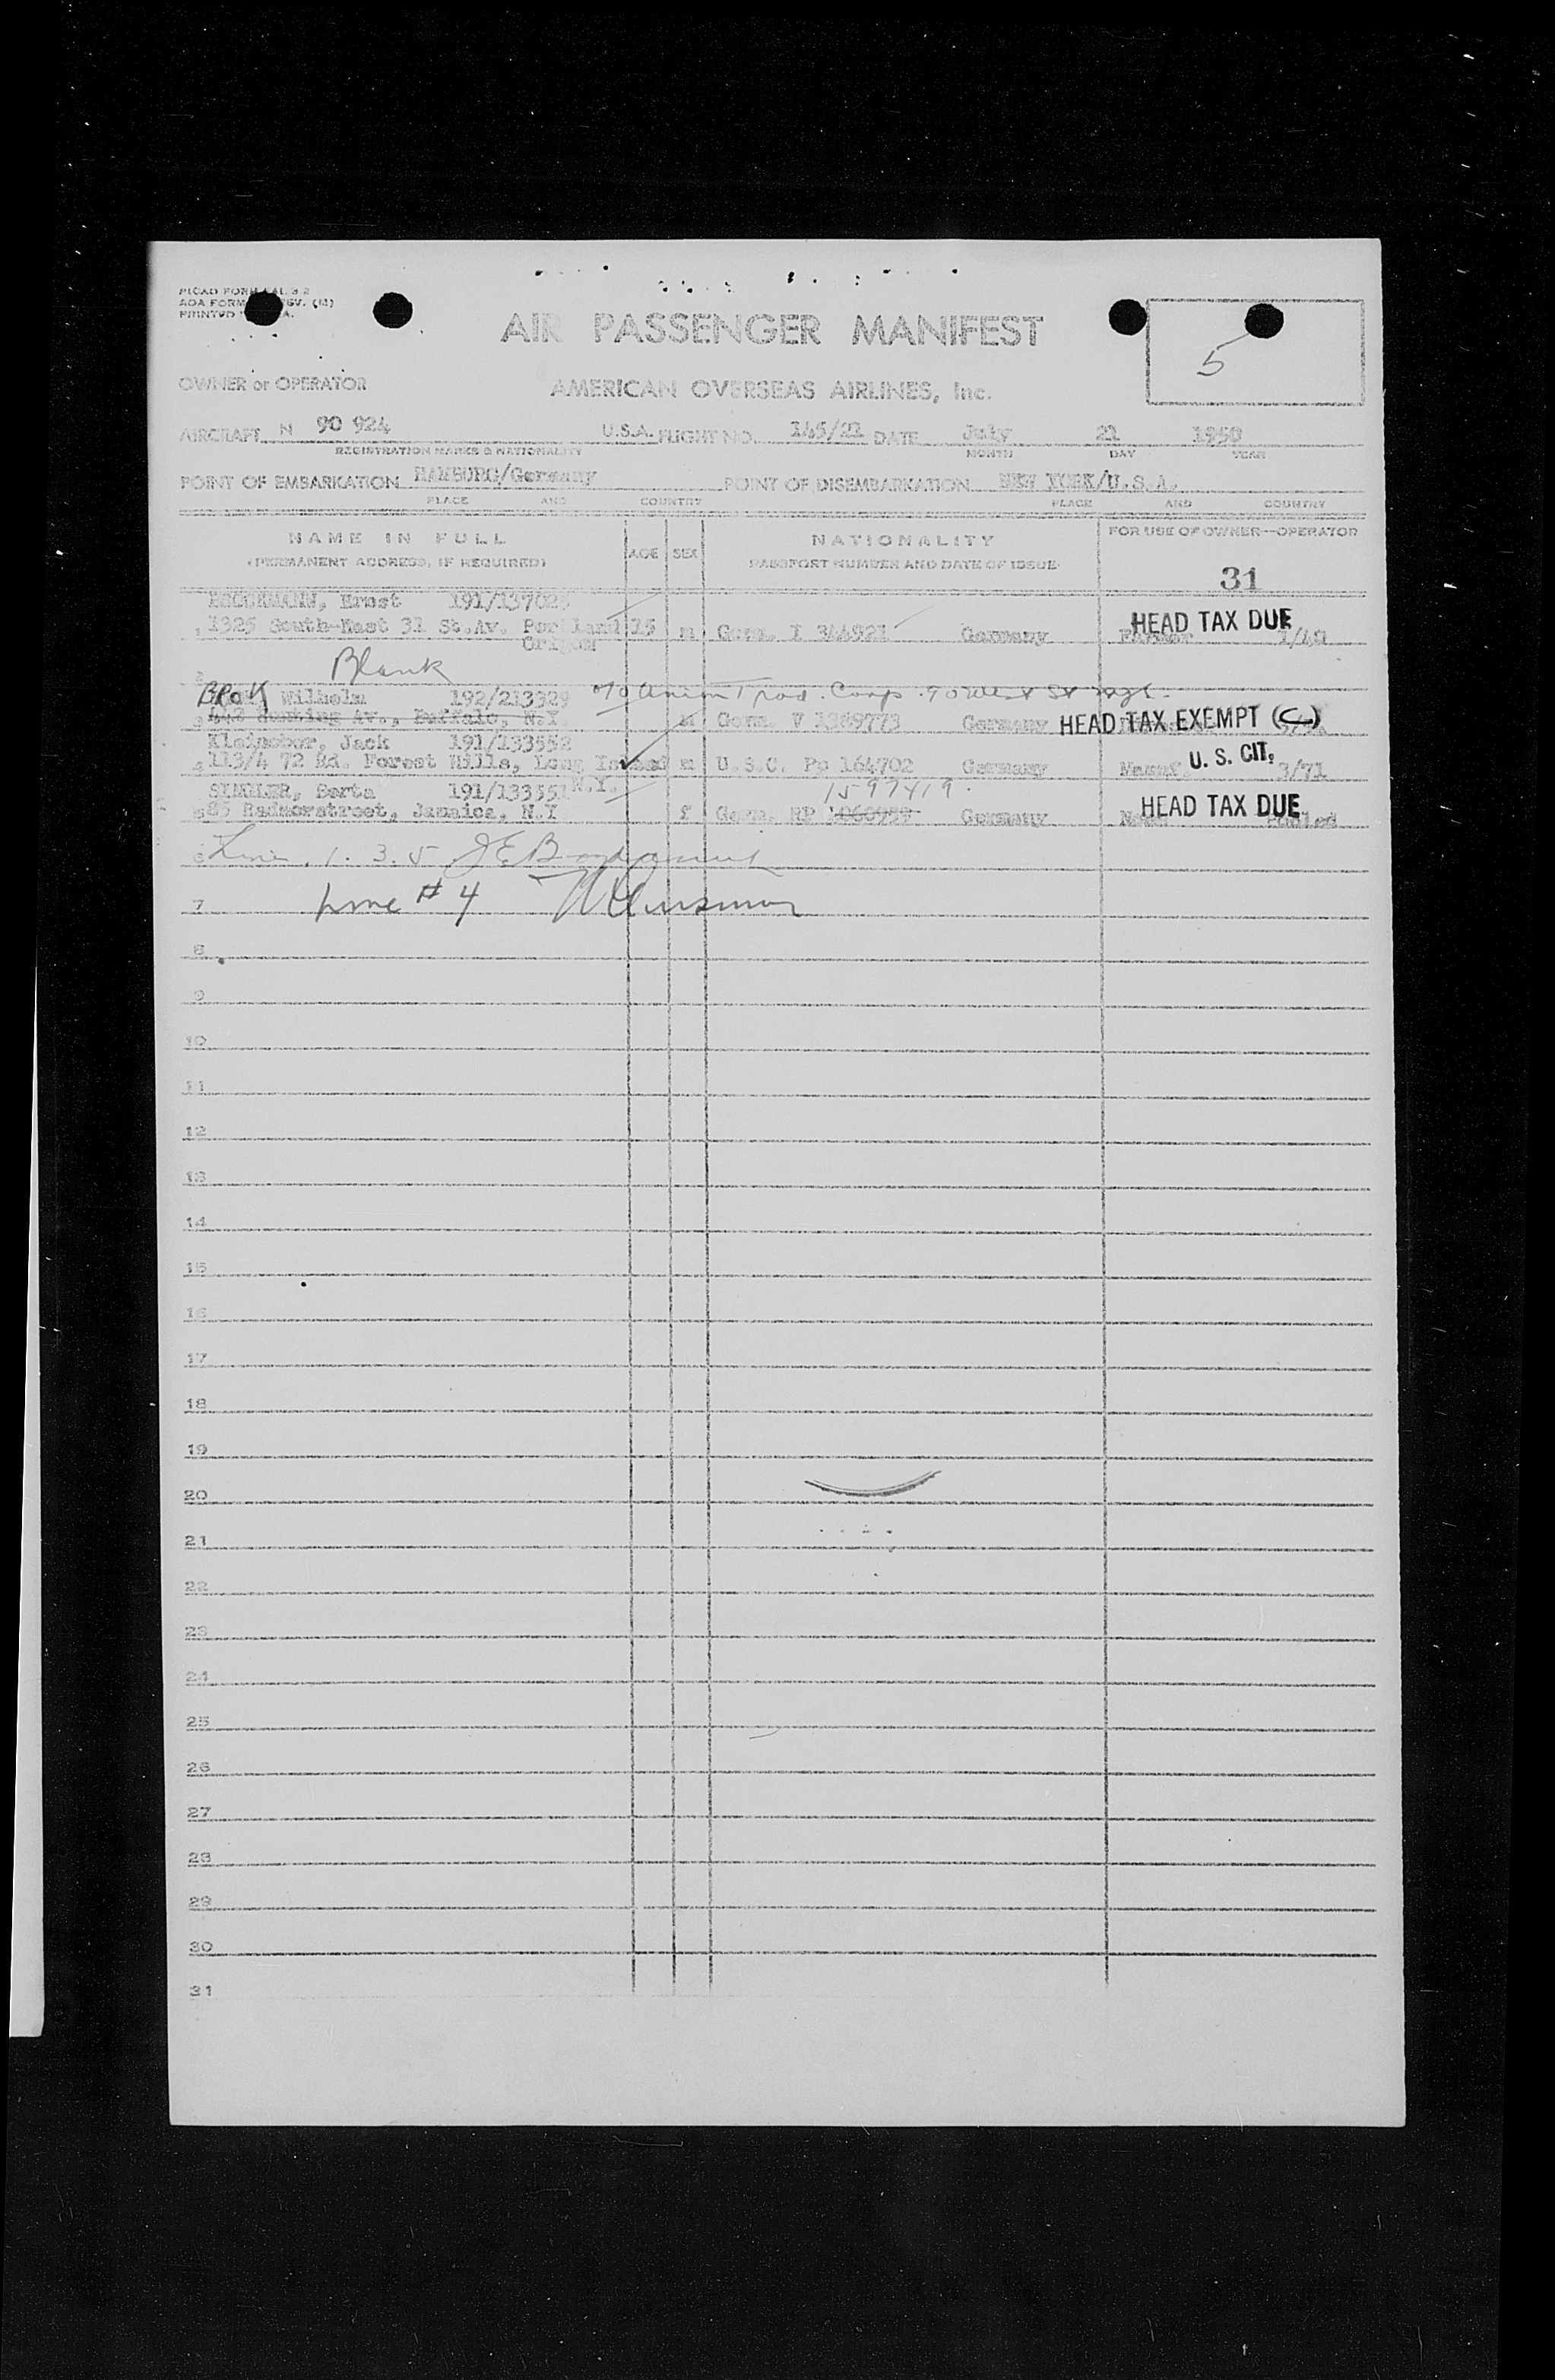 PICAO FORM
AOA FORM REV. (M)
PRINTED
AIR PASSENGER MANIFEST
5
OWNER or OPERATOR AMERICAN OVERSEAS AIRLINES, Inc.
AIRCRAFT N 90 924 U.S.A. FLIGHT NO. 145/21 DATE July 21 1950
REGISTRATION MARKS & NATIONALITY MONTH DAY YEAR
POINT OF EMBARKATION HAMBURG/Germany POINT OF DISEMBARKATION NEW YORK/U.S.A.
PLACE AND COUNTRY PLACE AND COUNTRY
NAME IN FULL AGE SEX NATIONALITY FOR USE OF OWNER—OPERATOR
(PERMANENT ADDRESS, IF REQUIRED) PASSPORT NUMBER AND DATE OF ISSUE
31
Ernst 191/137025
1 1325 South-East 31 St.Av. Portland 15 m Germ. Germany Farmer HEAD TAX DUE
2 Blank
BRoK Wilhelm 192/213329 c/o Union Trad. Corp. 90 West St
3 Av., Buffalo, N.Y. m Germ. 1369773 Germany HEAD TAX EXEMPT (C)
Jack 191/133552
113/4 72 Rd. Forest Hills, Long Island m U.S.C. Pp 164702 Germany Manuf. U. S. CIT. 3/71
N.Y. 1597419
Berta 191/133551
5 85 Radnorstreet, Jamaica, N.Y. f Germ. RP 1060959 Germany HEAD TAX DUE
6 Line 1. 3. 5
7 Line # 4
8
9
10
11
12
13
14
15
16
17
18
19
20
21
22
23
24
25
26
27
28
29
30
31